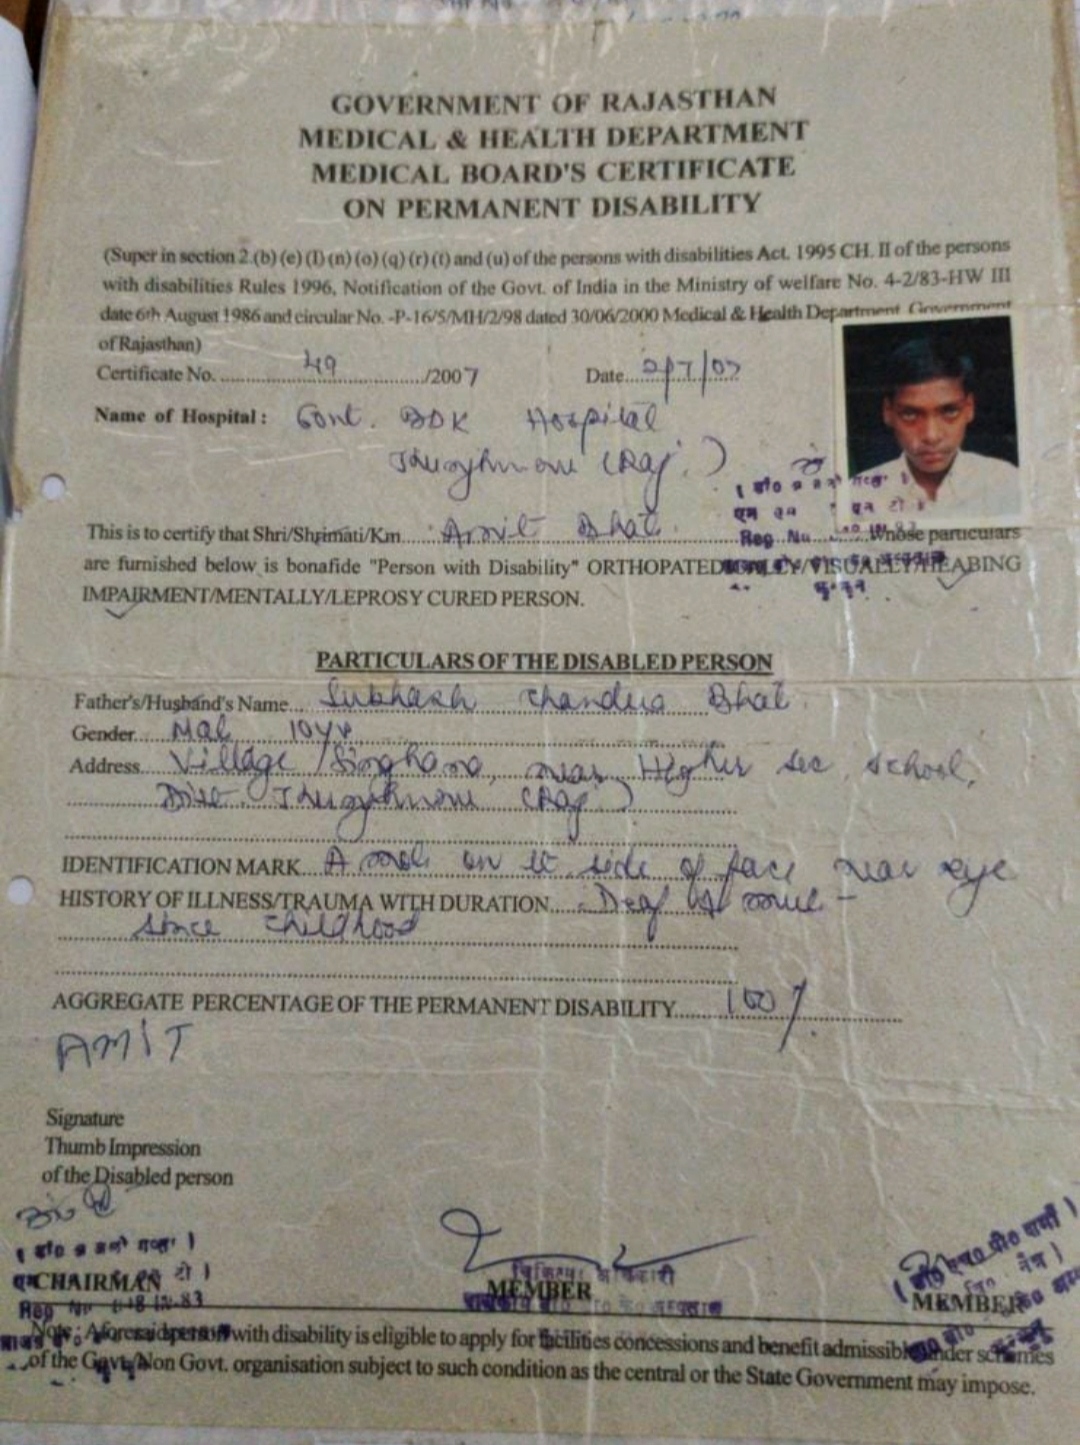 GOVERNMENT OF RAJASTHAN
MEDICAL & HEALTH DEPARTMENT
MEDICAL BOARD'S CERTIFICATE
ON PERMANENT DISABILITY
(Super in section 2.(b) (e) (l) (n) (o) (q) (r) (t) and (u) of the persons with disabilities Act. 1995 CH. II of the persons
with disabilities Rules 1996, Notification of the Govt. of India in the Ministry of welfare No. 4-2/83-HW III
date 6th August 1986 and circular No. -P-16/5/MH/2/98 dated 30/06/2000 Medical & Health Department Government
of Rajasthan)
Certificate No. 49 /2007 Date 2/7/07
Name of Hospital : Govt. BDK Hospital
(Raj.)
This is to certify that Shri/Shrimati/Km. Amit Bhat Whose particulars
Reg No
are furnished below is bonafide "Person with Disability" ORTHOPATEDICALLY/VISUALLY/HEABING
IMPAIRMENT/MENTALLY/LEPROSY CURED PERSON.
PARTICULARS OF THE DISABLED PERSON
Father's/Husband's Name Subhash Chandra Bhat
Gender
Address Village Singhana, near Higher sec. school,
Dist. (Raj)
IDENTIFICATION MARK A mole on lt side of face near eye
HISTORY OF ILLNESS/TRAUMA WITH DURATION Deaf
since childhood
AGGREGATE PERCENTAGE OF THE PERMANENT DISABILITY 100%
AMIT
Signature
Thumb Impression
of the Disabled person
CHAIRMAN
MEMBER
चिकित्सा अधिकारी
MEMBER
Reg No
Note : Aforesaid person with disability is eligible to apply for facilities concessions and benefit admissible under schemes
of the Govt./Non Govt. organisation subject to such condition as the central or the State Government may impose.